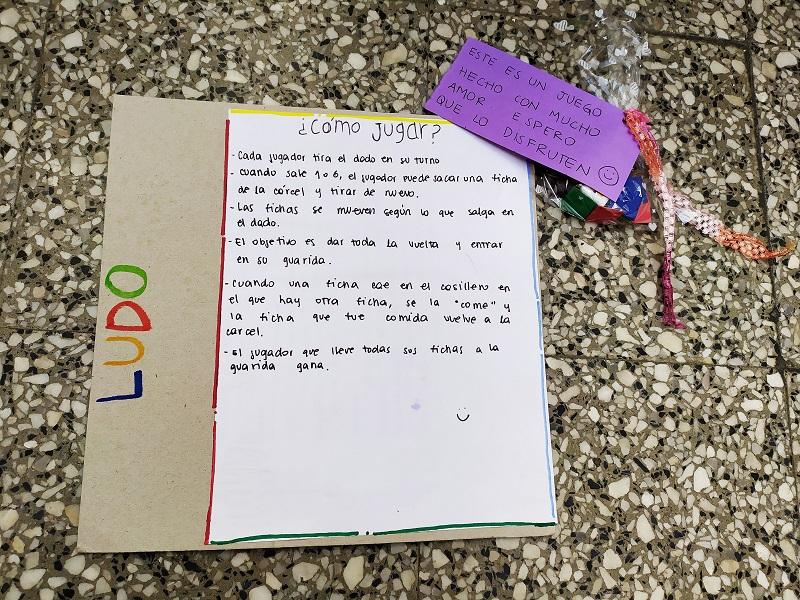 ESTE ES UN JUEGO
HECHO CON MUCHO
AMOR ESPERO
QUE LO DISFRUTEN
¿Cómo jugar?
- Cada jugador tira el dado en su turno
- cuando sale 1 o 6, el jugador puede sacar una ficha
de la cárcel y tirar de nuevo.
- Las fichas se mueven según lo que salga en
el dado.
- El objetivo es dar toda la vuelta y entrar
en su guarida.
- Cuando una ficha cae en el casillero en
el que hay otra ficha, se la "come" y
la ficha que fue comida vuelve a la
carcel.
- El jugador que lleve todas sus fichas a la
guarida gana.
LUDO